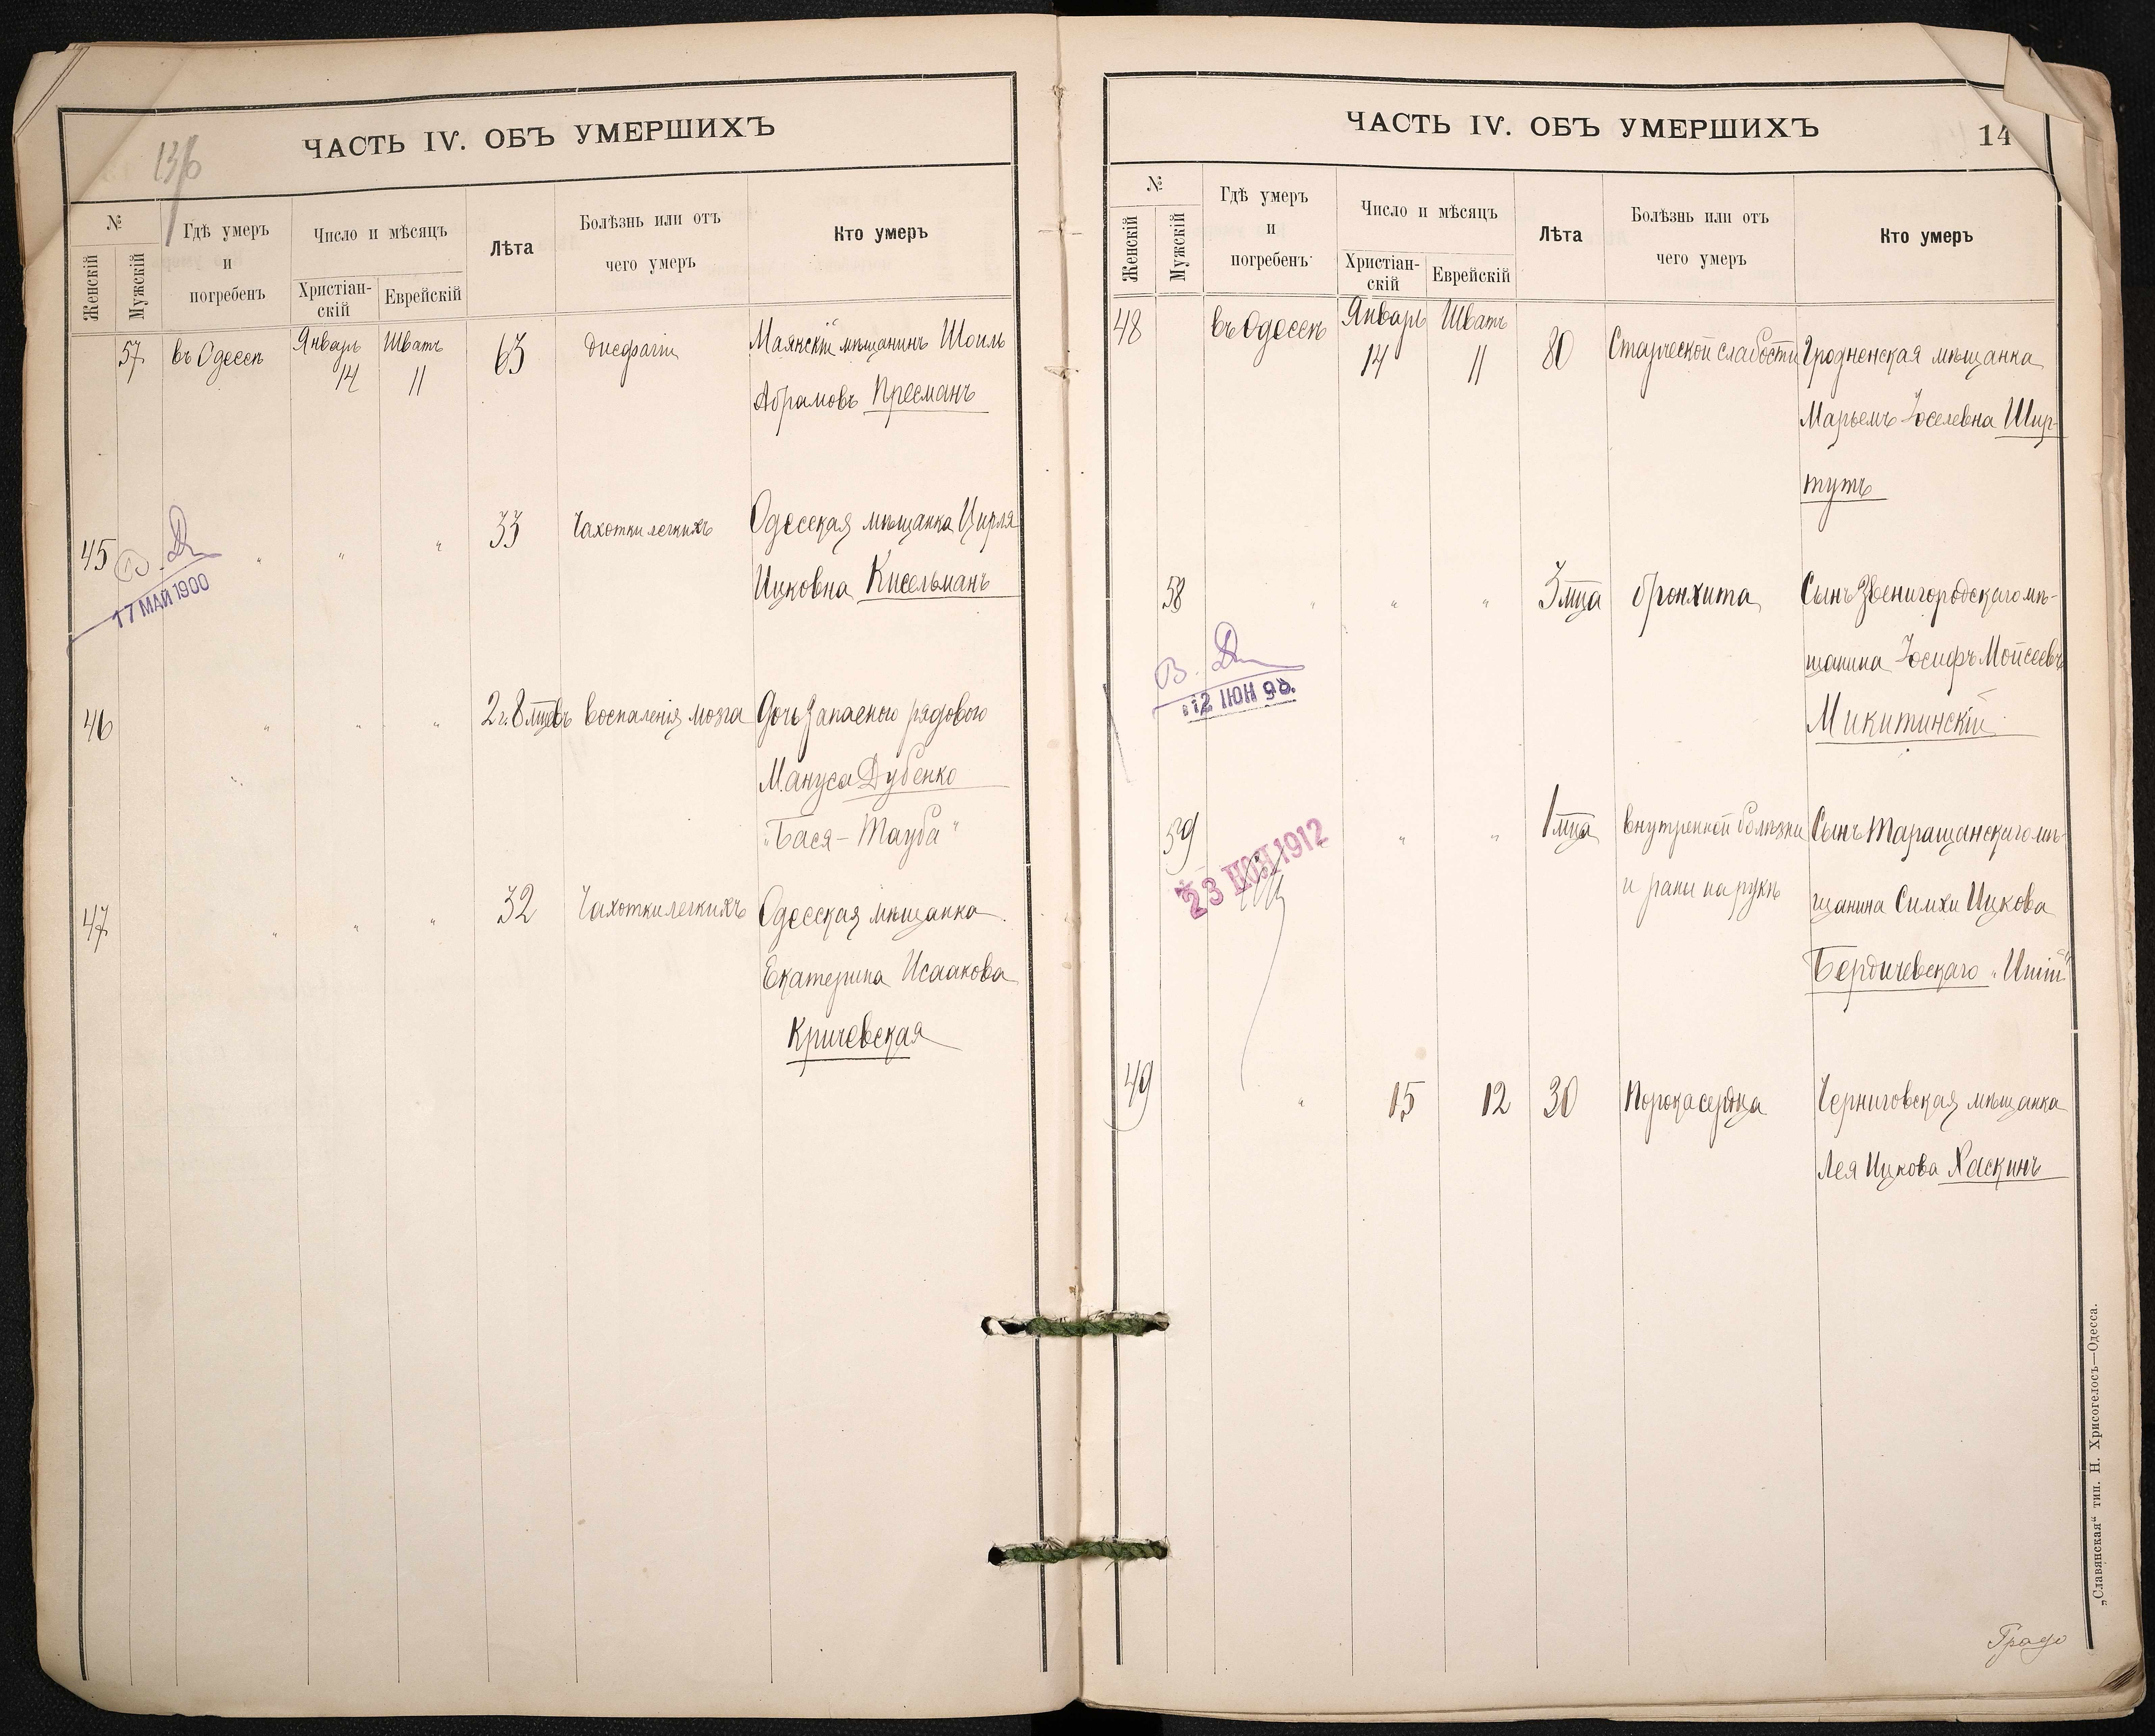 ЧАСТЬ IV. ОБЪ УМЕРШИХЪ
136
№
Женскій
Мужскій
Гдѣ умеръ
и
погребенъ
Число и мѣсяцъ
Христіан-
скій
Еврейскій
Лѣта
Болѣзнь или отъ
чего умеръ
Кто умеръ
57 въ Одессѣ Январь 14 Шватъ 11 63 Маякскій мѣщанинъ Шоиль
Абрамовъ Пресманъ
45 " " " 33 Чахотки легкихъ Одесская мѣщанка Цирля
Ицковна Кисельманъ
В.
17 МАЙ 1900
46 " " " 2 г. 8 мцевъ воспаленія мозга Дочь запасного рядового
Мануса Дубенко
"Бася-Тауба"
47 " " " 32 Чахотки легкихъ Одесская мѣщанка
Екатерина Исаакова
Кричевская
ЧАСТЬ IV. ОБЪ УМЕРШИХЪ
14
№
Женскій
Мужскій
Гдѣ умеръ
и
погребенъ
Число и мѣсяцъ
Христіан-
скій
Еврейскій
Лѣта
Болѣзнь или отъ
чего умеръ
Кто умеръ
48 въ Одессѣ Январь 14 Шватъ 11 80 Старческой слабости Гродненская мѣщанка
Марьемъ Іоселевна Шир-
тутъ
58 " " " 3 мца бронхита Сынъ Звенигородскаго мѣ-
щанина Іосифъ Мойсеевъ
Микитинскій
В.
12 ІЮН 98.
59 " " 1 мца внутренней болѣзни Сынъ Таращанскаго мѣ-
и рани на рукѣ щанина Симхи Ицкова
Бердичевскаго
23 1912
49 " 15 12 30 Порока сердца Черниговская мѣщанка
Лея Ицкова Хаскинъ
„Славянская“ тип. Н. Хрисогелосъ—Одесса.